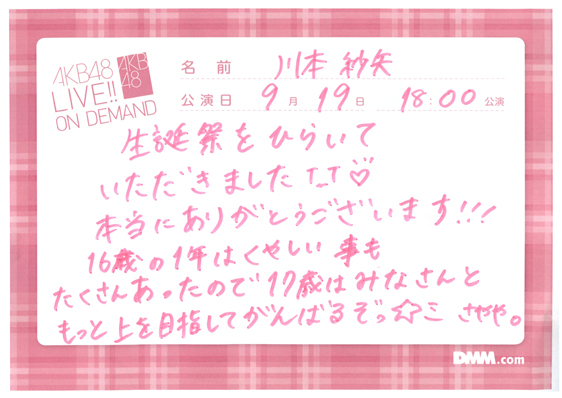 AKB48
LIVE!!
ON DEMAND
AKB
48
名前 川本 紗矢
公演日 9月19日 18:00公演
生誕祭をひらいて
いただきましたT_T♡
本当にありがとうございます!!!
16歳の1年はくやしい事も
たくさんあったので17歳はみなさんと
もっと上を目指してがんばるぞっ☆ミ さやや。
DMM.com